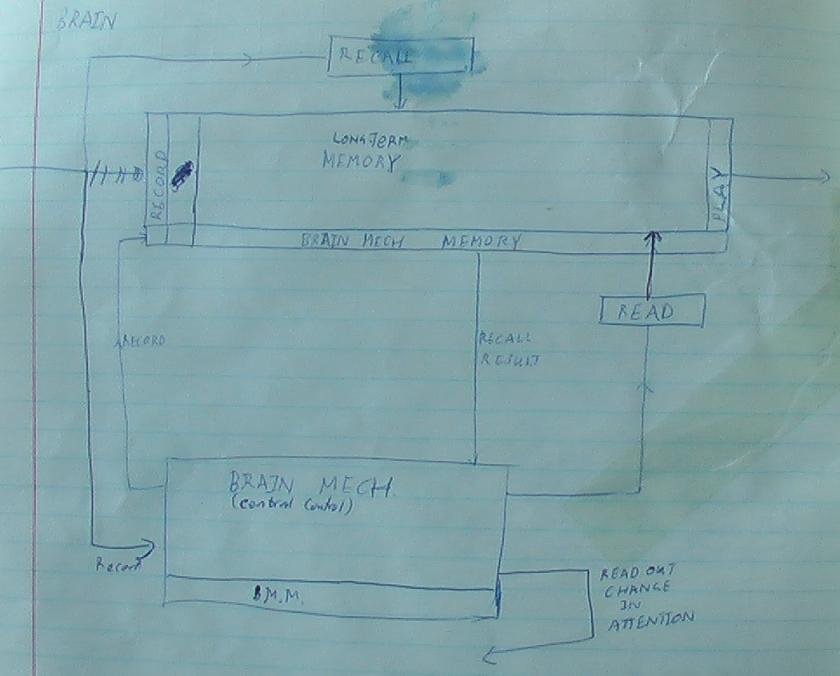 BRAIN
RECALL
LONG TERM
MEMORY
RECORD
PLAY
BRAIN MECH MEMORY
READ
RECORD
RECALL
RESULT
BRAIN MECH.
(central control)
Record
B.M.M.
READ OUT
CHANGE
IN
ATTENTION